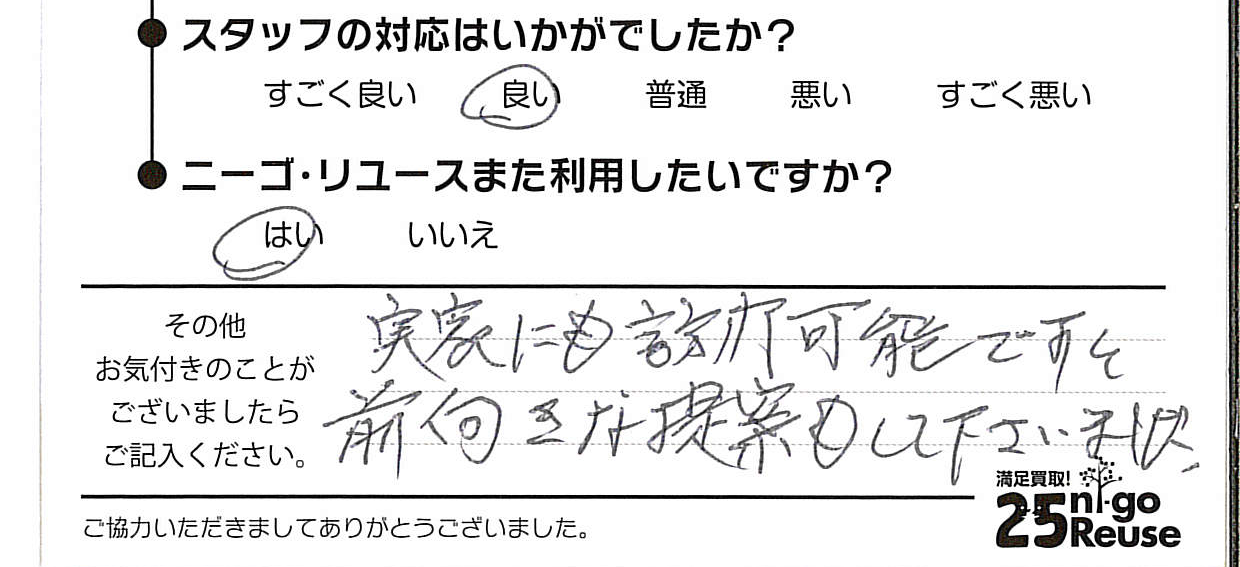 スタッフの対応はいかがでしたか？
すごく良い 良い 普通 悪い すごく悪い
ニーゴ・リユースまた利用したいですか？
はい いいえ
その他
お気付きのことが
ございましたら
ご記入ください。
実家にも訪问可能ですと
前向きな提案もして下さいました。
満足買取!
25 ni-go Reuse
ご協力いただきましてありがとうございました。